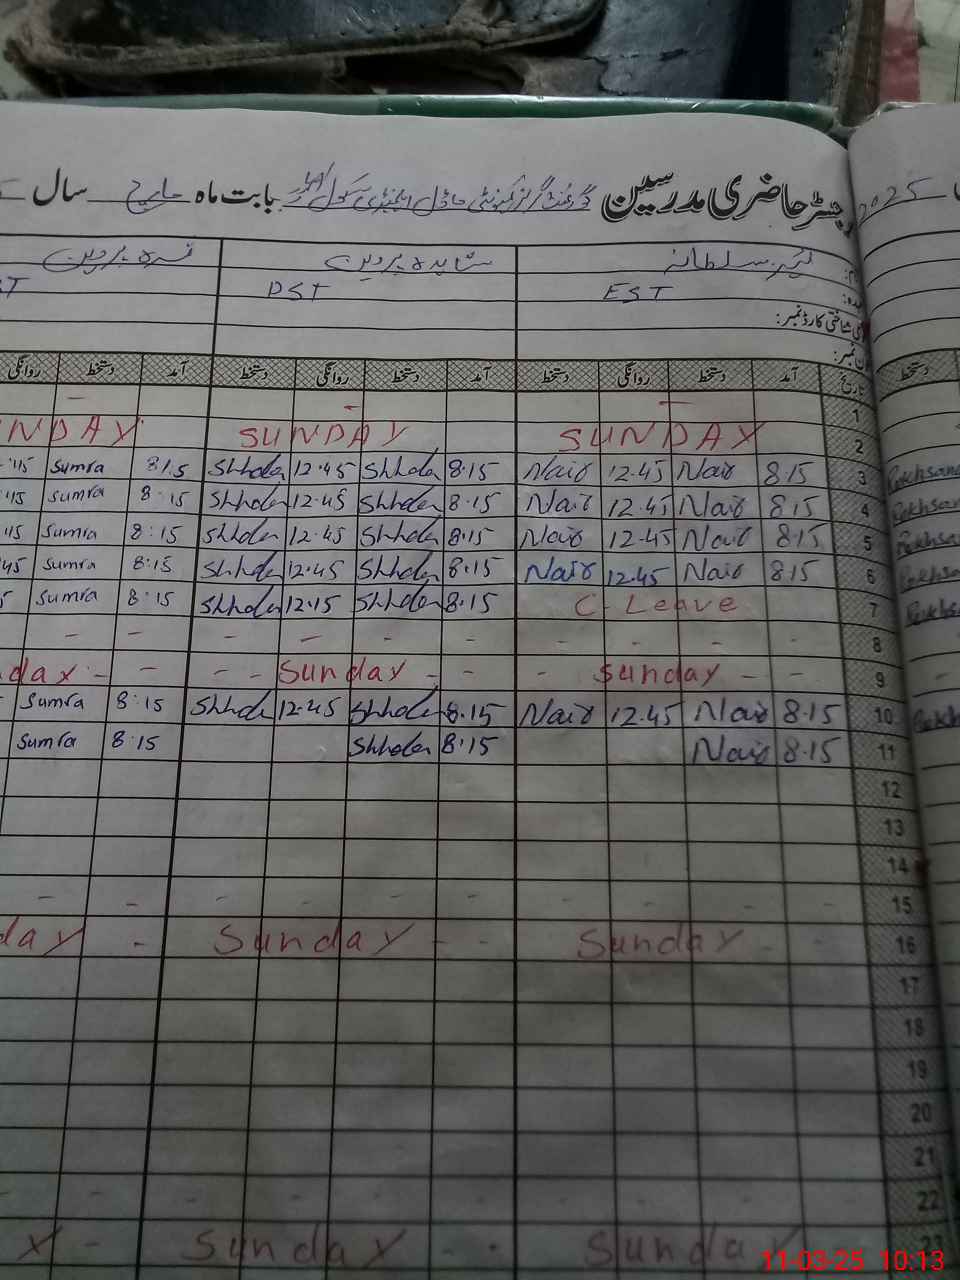 رجسٹر حاضری مدرسین گورنمنٹ گرلز کمیونٹی ماڈل ایلیمنٹری سکول بابت ماہ مارچ سال
2025
نیئر سلطانہ شاہدہ پروین
EST PST ST
شناختی کارڈ نمبر:
تاریخ آمد دستخط روانگی دستخط آمد دستخط روانگی دستخط آمد دستخط روانگی
دستخط
1 - - -
2 SUNDAY SUNDAY NDAY
3 8.15 Nair 12.45 Nair 8.15 Shhda 12.45 Shhda 8.15 Sumra :15
4 8.15 Nair 12.45 Nair 8.15 Shhda 12.45 Shhda 8:15 Sumra :15
5 8.15 Nair 12.45 Nair 8.15 Shhda 12.45 Shhda 8:15 Sumra 15
6 8.15 Nair 12.45 Nair 8.15 Shhda 12.45 Shhda 8:15 Sumra 45
7 C-Leave 8.15 Shhda 12.15 Shhda 8:15 Sumra 5
8 - - - - - - - - - -
9 - - Sunday - - Sunday - - - day -
10 8.15 Nair 12.45 Nair 8.15 Shhda 12.45 Shhda 8:15 Sumra
11 8.15 Nair 8.15 Shhda 8:15 Sumra
12
13
14
15 - - - - - - - - - -
16 - - Sunday - - Sunday - day
17
18
19
20
21
22 - - - - - - - - - -
23 Sunday - - Sunday - y
11-03-25 10:13